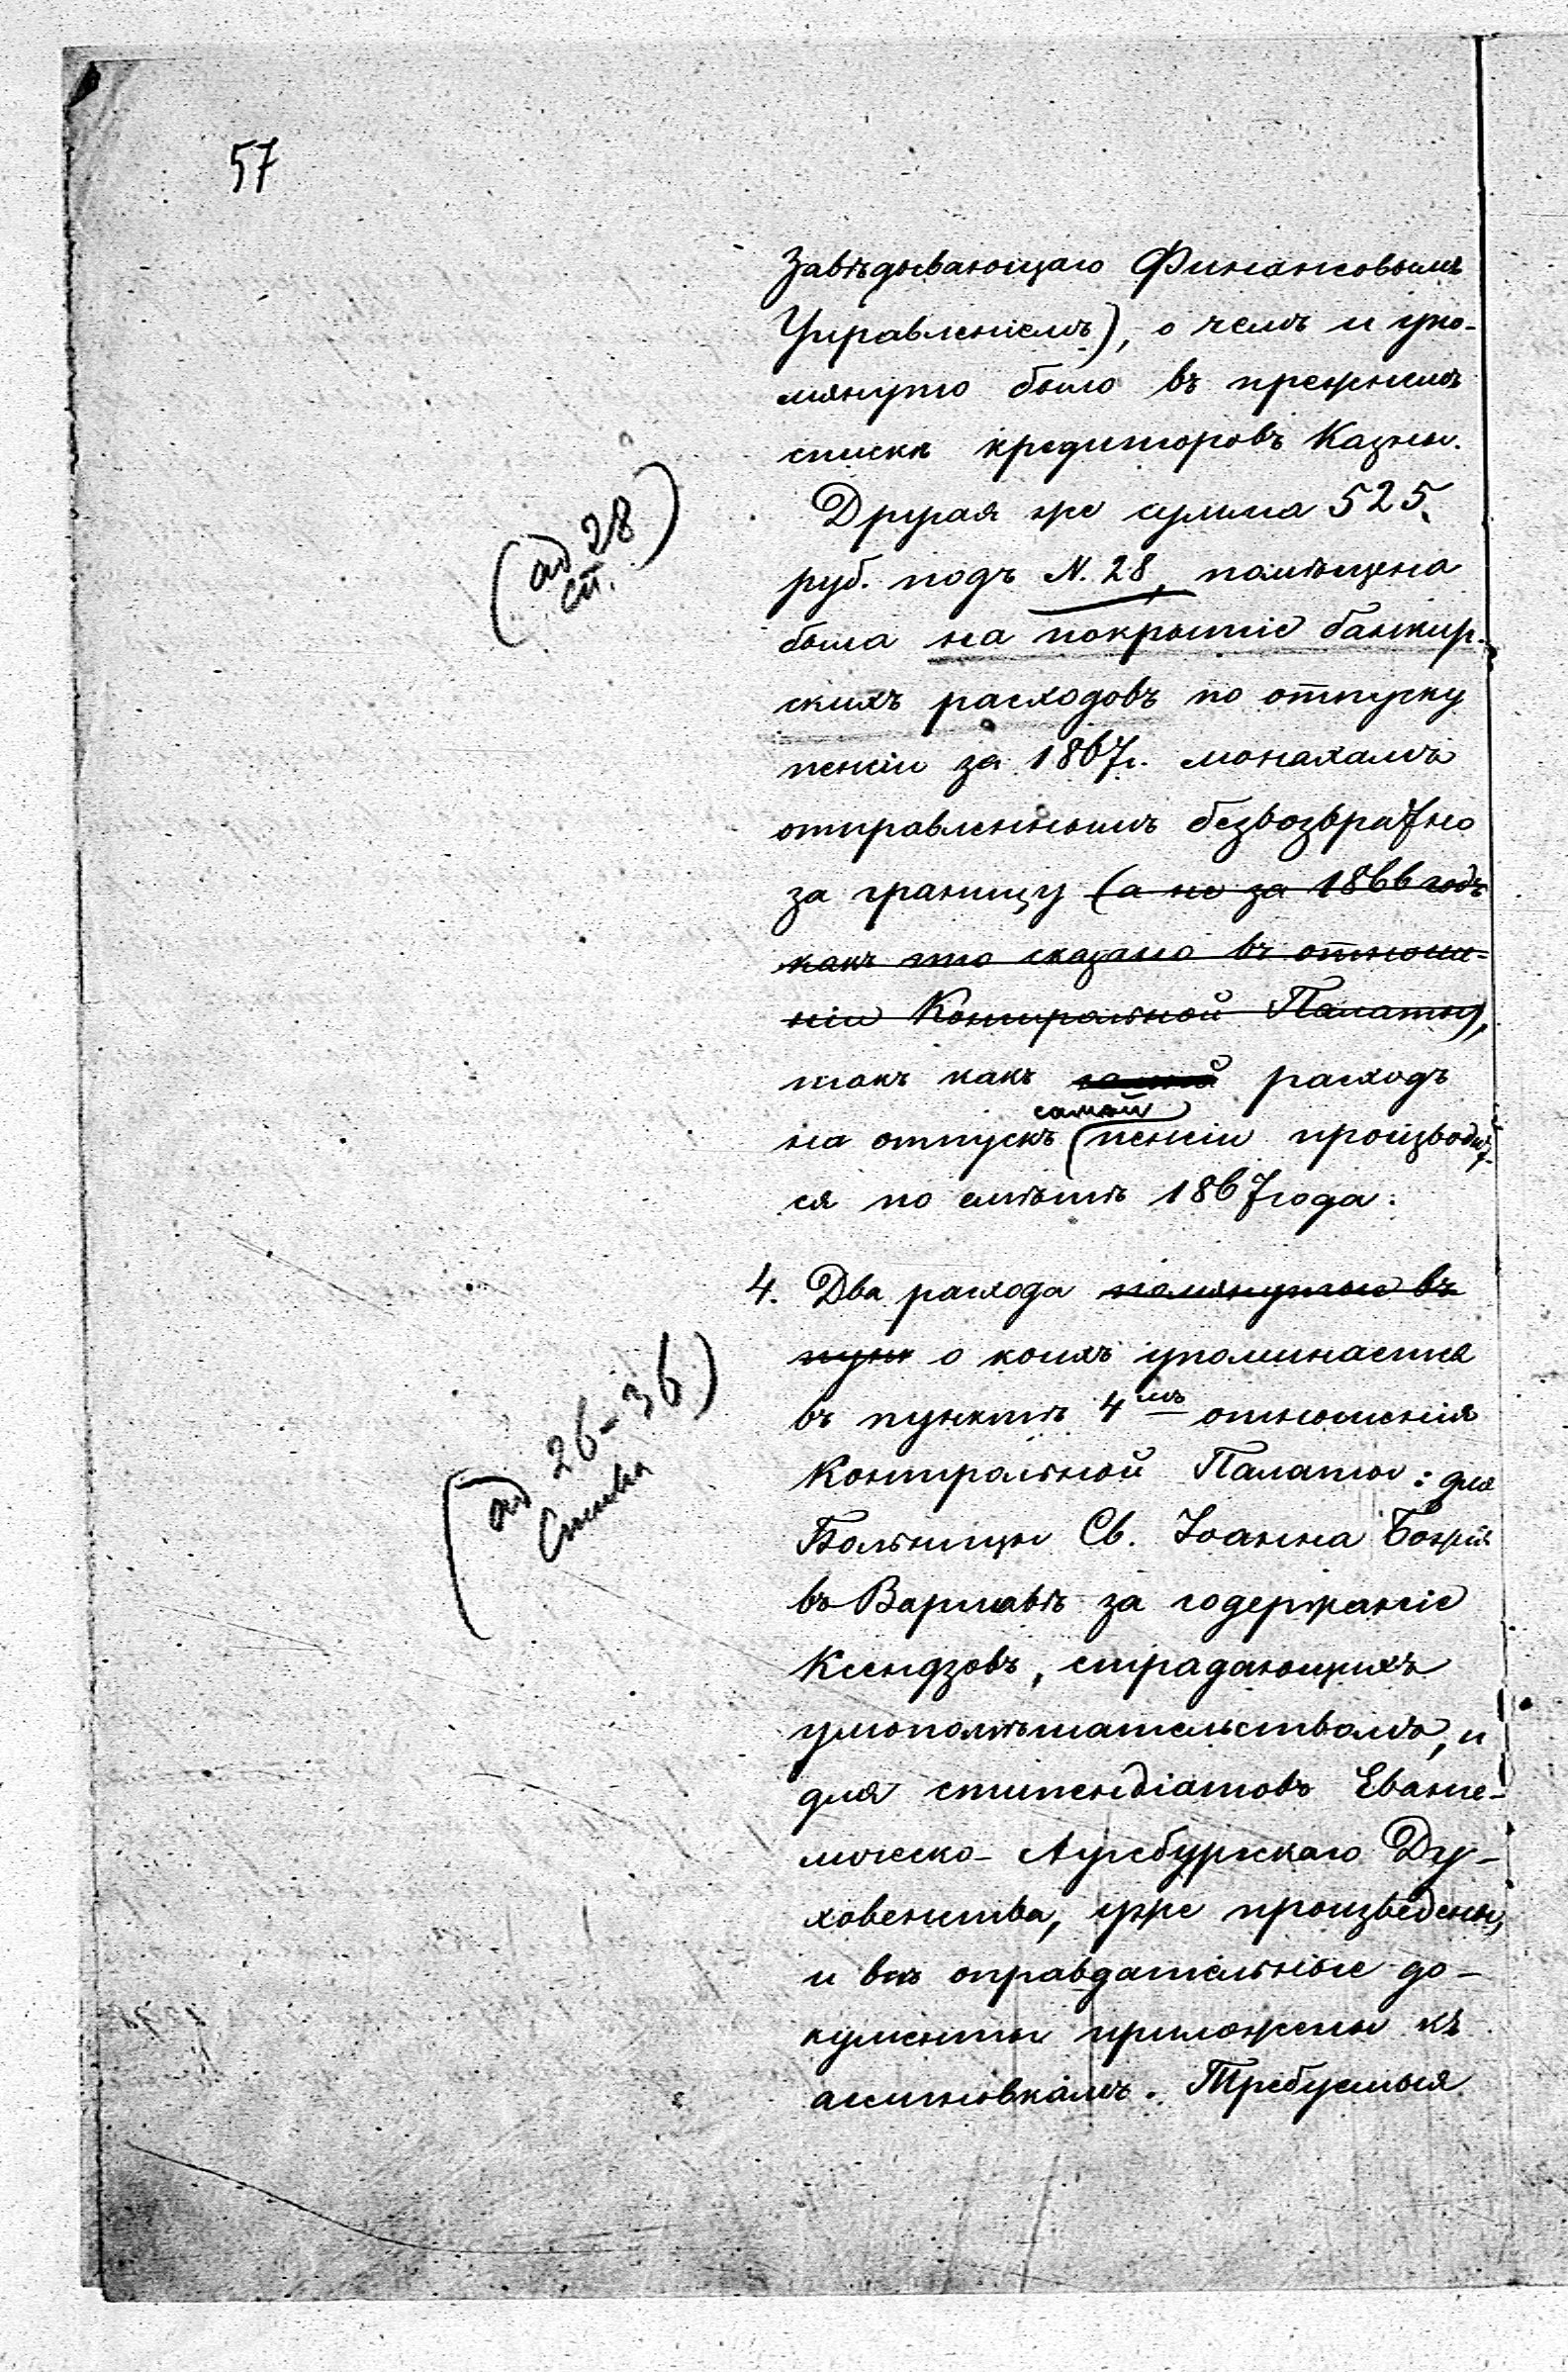 57
Завѣдывающаго Финансовымъ
Управленіемъ), о чемъ и упо-
мянуто было въ прежнемъ
спискѣ кредиторовъ Казны.
(ad 28
ст.)
Другая же сумма 525
руб. подъ N. 28, помѣщена
была на покрытіе банкир-
скихъ расходовъ по отпуску
пенсіи за 1867г. монахамъ
отправленнымъ безвозвратно
за границу (а не за 1866 годъ
какъ это сказано въ отноше-
ніи Контрольной Палаты),
такъ какъ самой расходъ
самой
на отпускъ пенсіи производит-
ся по смѣтѣ 1867 года.
4. Два расхода помянутые въ
пунк о коихъ упоминается
(ad 26-36)
въ пунктѣ 4мъ отношенія
Контрольной Палаты: для
Больницы Св. Іоанна Божія
въ Варшавѣ за содержаніе
Ксендзовъ, страдающихъ
умопомѣшательствомъ, и
для стипендіатовъ Еванге-
лическо-Аугсбургскаго Ду-
ховенства, уже произведены,
и всѣ оправдательные до-
кументы приложены къ
ассигновкамъ. Требуемыя